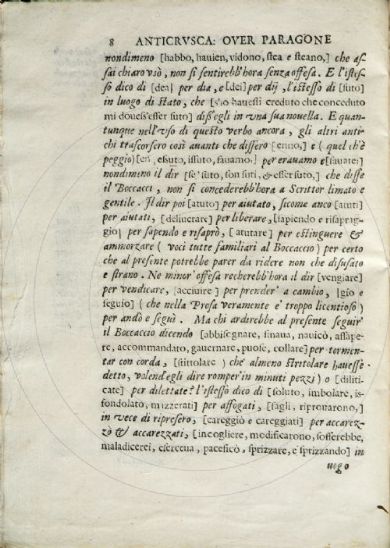 8 ANTICRVSCA: OVER PARAGONE
nondimeno [habbo, hauien, vidono, stea e steano,] che as-
sai chiaro vsò, non si sentirebb'hora senza offesa. E l'istes-
so dico di [dea] per dia, e [dei] per dij, e l'istesso di [suto]
in luogo di stato, che [s'io hauesti creduto che conceduto
mi douess'esser suto] diss'egli in vna sua nouella. E quan-
tunque nell'vso di questo verbo ancora, gli altri anti-
chi trascorser così auanti che differo [enno,] e ( quel ch'è
peggio) [en, essuto, issuto, sauamo,] per erauamo e [sauate]
nondimeno il dir [se' suto, son suti, & esser suto,] che disse
il Boccacci, non si concederebb'hora a Scrittor limato e
gentile. Il dir poi [atuto] per aiutato, sicome anco [atuti]
per aiutati, [delinerare] per liberare, [sapiendo e risaprag-
gio] per sapendo e risaprò, [atutare] per estinguere &
ammorzare ( voci tutte familiari al Boccaccio ) per certo
che al presente potrebbe parer da ridere non che disusato
e strano. Ne minor' offesa recherebb'hora il dir [vengiare]
per vendicare, [acciuire] per prender' a cambio, [gio e
seguio] ( che nella Prosa veramente e' troppo licentioso )
per andò e seguì. Ma chi ardirebbe al presente seguir'
il Boccaccio dicendo [abbisegnare, finaua, nauicò, assape-
re, accommandato, gauernare, puose, collare] per termen-
tar con corda, [stittolare ) che almeno stritolare hauesse
detto, volend'egli dire romper' in minuti pezzi ) o [diliti-
cate] per dilettate? l'istesso dico di [soluto, imbolare, is-
fondolato, mizzerati] per affogati, [sagli, riprouarono,]
in vece di ripresero, [careggiò e careggiati] per accarez-
zò & accarezzati, [incogliere, modificarono, sofferebbe,
maladicerei, eserceua, pacesicò, sprizzare, e sprizzando] in
uogo